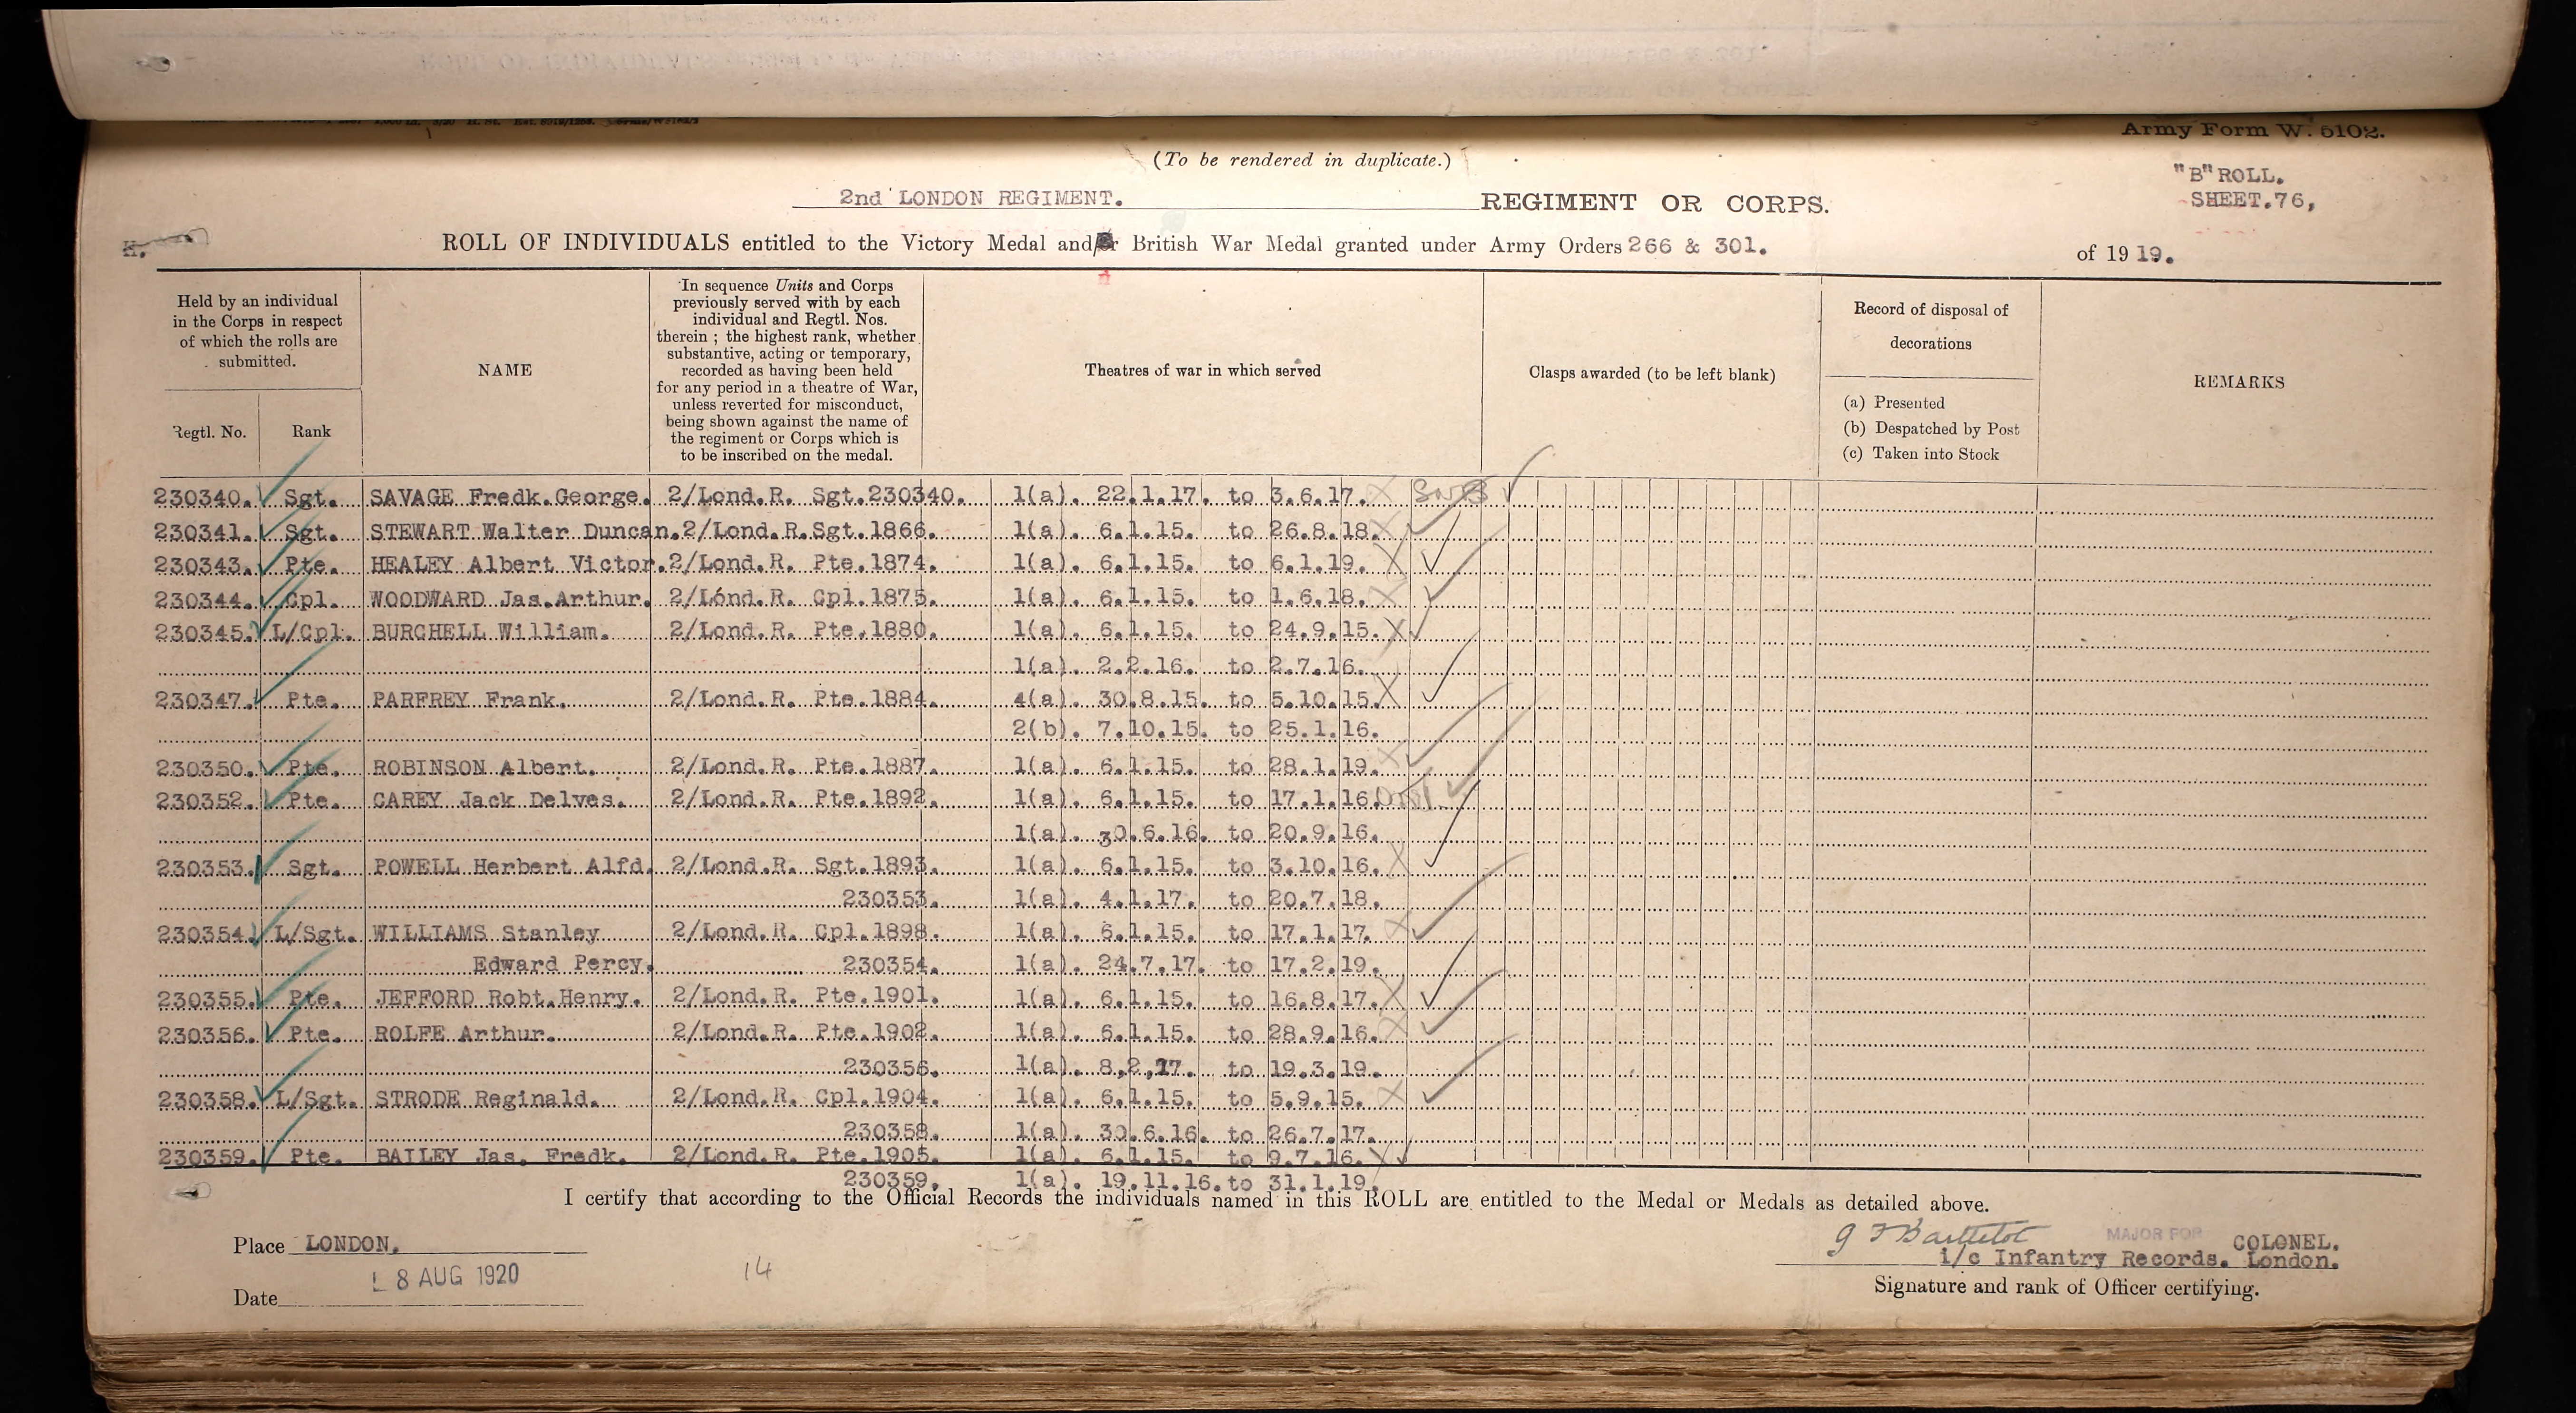 Army Form W. 5102.
(To be rendered in duplicate.)
"B" ROLL.
SHEET.76,
2nd LONDON REGIMENT. REGIMENT OR CORPS.
H.
ROLL OF INDIVIDUALS entitled to the Victory Medal and/or British War Medal granted under Army Orders 266 & 301. of 1919.
Held by an individual
in the Corps in respect
of which the rolls are
submitted.
Regtl. No. Rank
NAME
In sequence Units and Corps
previously served with by each
individual and Regtl. Nos.
therein ; the highest rank, whether
substantive, acting or temporary,
recorded as having been held
for any period in a theatre of War,
unless reverted for misconduct,
being shown against the name of
the regiment or Corps which is
to be inscribed on the medal.
Theatres of war in which served
Clasps awarded (to be left blank)
Record of disposal of
decorations
(a) Presented
(b) Despatched by Post
(c) Taken into Stock
REMARKS
230340. Sgt. SAVAGE Fredk.George. 2/Lond.R. Sgt.230340. 1(a). 22.1.17. to 3.6.17.
230341. Sgt. STEWART Walter Duncan. 2/Lond.R.Sgt.1866. 1(a). 6.1.15. to 26.8.18.
230343. Pte. HEALEY Albert Victor. 2/Lond.R. Pte.1874. 1(a). 6.1.15. to 6.1.19.
230344. Cpl. WOODWARD Jas.Arthur. 2/Lond.R. Cpl.1875. 1(a). 6.1.15. to 1.6.18.
230345. L/Cpl. BURCHELL William. 2/Lond.R. Pte.1880. 1(a). 6.1.15. to 24.9.15.
1(a). 2.2.16. to 2.7.16.
230347. Pte. PARFREY Frank. 2/Lond.R. Pte.1884. 4(a). 30.8.15. to 5.10.15.
2(b). 7.10.15. to 25.1.16.
230350. Pte. ROBINSON Albert. 2/Lond.R. Pte.1887. 1(a). 6.1.15. to 28.1.19.
230352. Pte. CAREY Jack Delves. 2/Lond.R. Pte.1892. 1(a). 6.1.15. to 17.1.16.
1(a). 30.6.16. to 20.9.16.
230353. Sgt. POWELL Herbert Alfd. 2/Lond.R. Sgt.1893. 1(a). 6.1.15. to 3.10.16.
230353. 1(a). 4.1.17. to 20.7.18.
230354. L/Sgt. WILLIAMS Stanley 2/Lond.R. Cpl.1898. 1(a). 6.1.15. to 17.1.17.
Edward Percy. 230354. 1(a). 24.7.17. to 17.2.19.
230355. Pte. JEFFORD Robt.Henry. 2/Lond.R. Pte.1901. 1(a). 6.1.15. to 16.8.17.
230356. Pte. ROLFE Arthur. 2/Lond.R. Pte.1902. 1(a). 6.1.15. to 28.9.16.
230356. 1(a). 8.2.17. to 19.3.19.
230358. L/Sgt. STRODE Reginald. 2/Lond.R. Cpl.1904. 1(a). 6.1.15. to 5.9.15.
230358. 1(a). 30.6.16. to 26.7.17.
230359. Pte. BAILEY Jas. Fredk. 2/Lond.R. Pte.1905. 1(a). 6.1.15. to 9.7.16.
230359. 1(a). 19.11.16. to 31.1.19.
I certify that according to the Official Records the individuals named in this ROLL are entitled to the Medal or Medals as detailed above.
Place LONDON.
MAJOR FOR COLONEL.
i/c Infantry Records. London.
8 AUG 1920
14
Date
Signature and rank of Officer certifying.